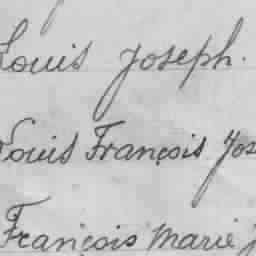 Louis Joseph.
Louis François Jos
François Marie J